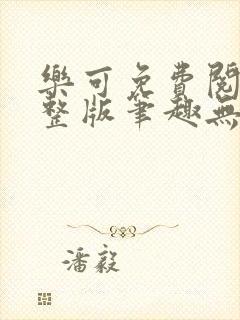 樂可免費閱
整版筆趣無
潘毅